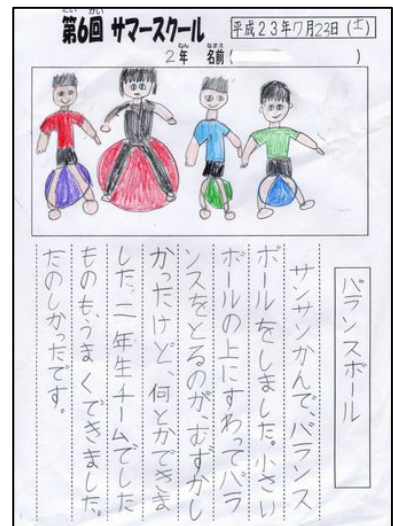 第6回 サマースクール
平成23年7月23日(土)
2年 名前( )
バランスボール
サンサンかんで、バランス
ボールをしました。小さい
ボールの上にすわってバラ
ンスをとるのが、むずかし
かったけど、何とかできま
した。二年生チームでした
ものも、うまくできました。
たのしかったです。